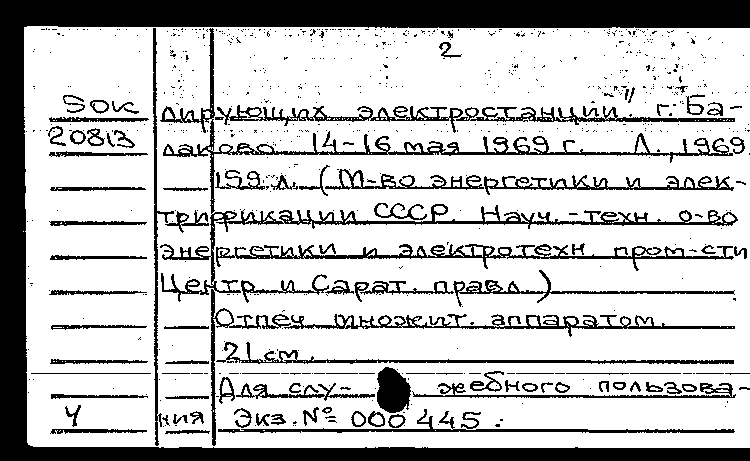 2
Sок лирующих электростанции" г. Ба-
20813 лаково 14-16 мая 1969 г. Л., 1969
159 л. (М-во энергетики и элек-
трификации СССР. Науч.-техн. о-во
энергетики и электротехн. пром-сти
Центр. и Сарат. правл.)
Отпеч множит. аппаратом.
21 см.
Для слу- жебного пользова-
Ч ния Экз. № 000 445.